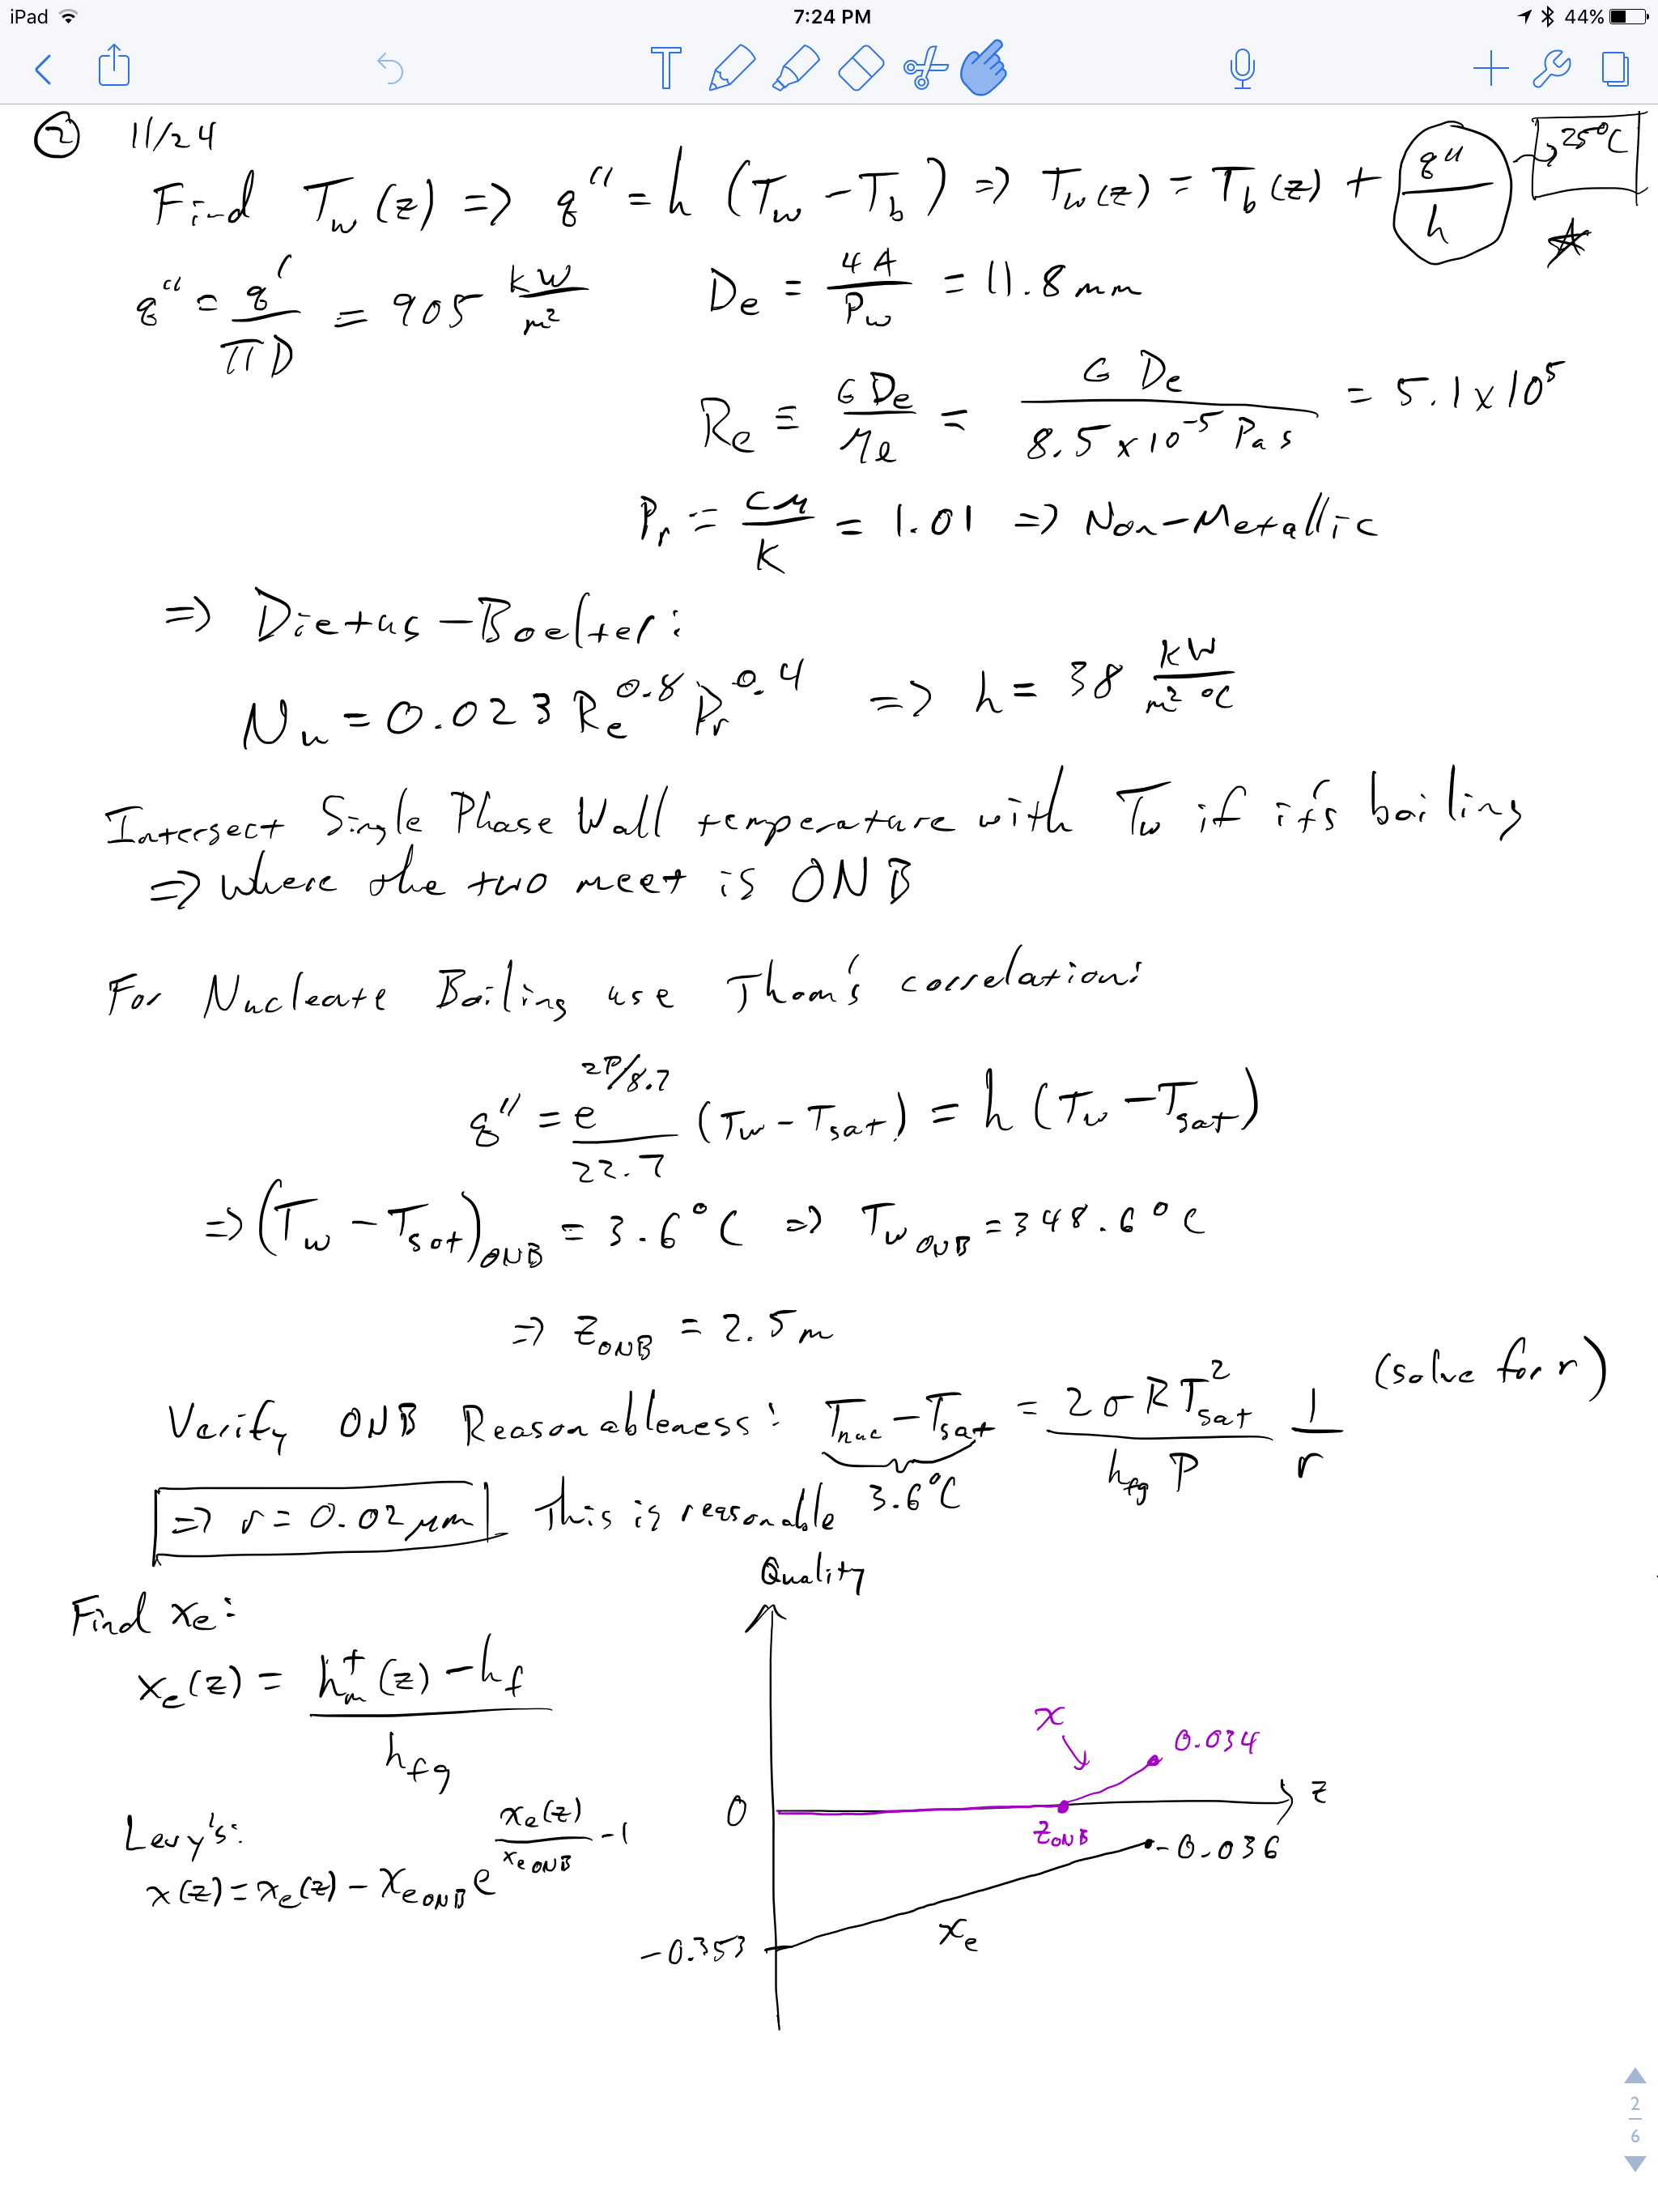 iPad 7:24 PM 44%
T
② 11/24
Find Tw(z) => q" = h (Tw - Tb) => Tw(z) = Tb(z) + q"/h → 25°C ☆
q" = q'/πD = 905 kW/m² De = 4A/Pw = 11.8 mm
Re ≡ G De/μl = G De/8.5 x 10⁻⁵ Pa s = 5.1 x 10⁵
Pr = cμ/K = 1.01 => Non-Metallic
=> Dietus-Boelter:
Nu = 0.023 Re^0.8 Pr^0.4 => h = 38 kW/m² °C
Intersect Single Phase Wall temperature with Tw if it's boiling
=> where the two meet is ONB
For Nucleate Boiling use Thom's correlation:
q" = e^(2P/8.7)/22.7 (Tw - Tsat) = h (Tw - Tsat)
=> (Tw - Tsat)ONB = 3.6°C => Tw ONB = 348.6°C
=> zONB = 2.5 m
Verify ONB Reasonableness: Tnuc - Tsat = 2σRT²sat/hfg P 1/r (solve for r)
3.6°C
=> r = 0.02 μm This is reasonable
Quality
Find xe:
xe(z) = h⁺m(z) - hf/hfg
x
0.034
0
z
zONB
-0.036
Levy's:
x(z) = xe(z) - xe ONB e^(xe(z)/xe ONB - 1)
xe
-0.353
2
6